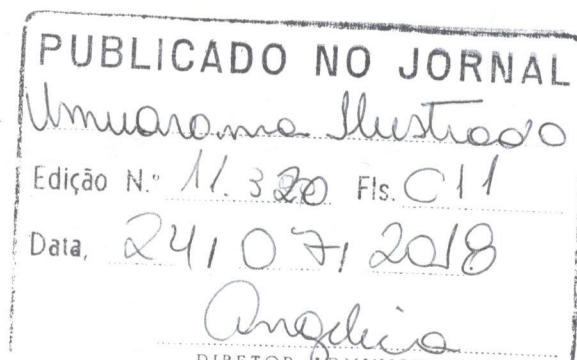 PUBLICADO NO JORNAL
Umuarama Ilustrado
Edição N.º 11.320 Fls. C11
Data, 24, 07, 2018
Angelica
DIRETOR